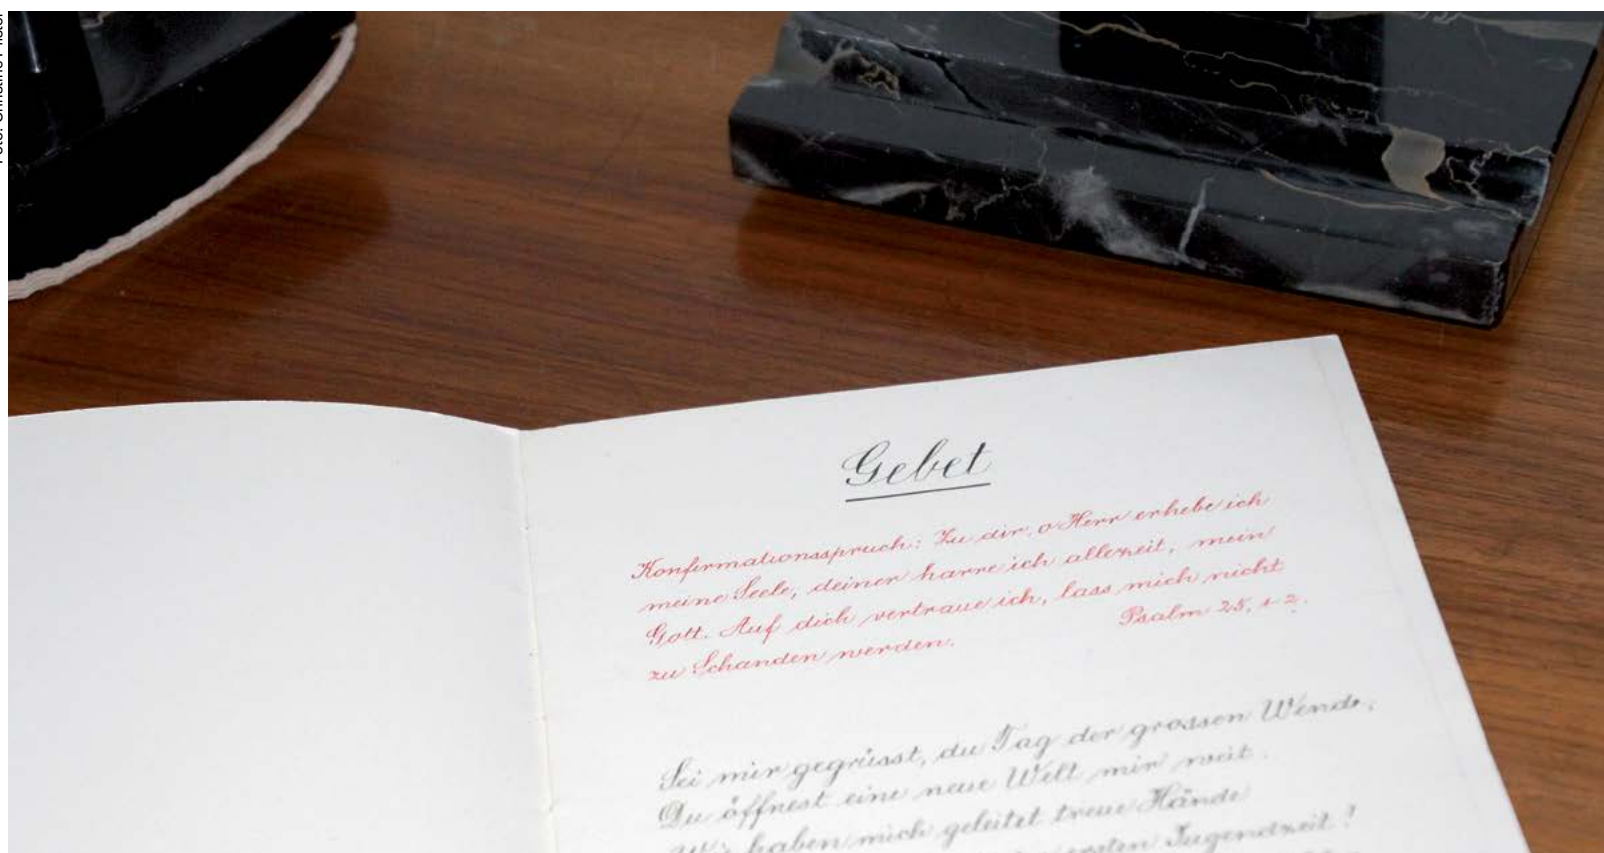 Gebet
Konfirmationsspruch: Zu dir, o Herr erhebe ich
meine Seele, deiner harre ich allezeit, mein
Gott. Auf dich vertraue ich, lass mich nicht
zu Schanden werden.
Psalm 25, 1-2.
Sei mir gegrüsst, du Tag der grossen Wende,
Du öffnest eine neue Welt mir weit.
haben mich geleitet treue Hände
ersten Jugendzeit!